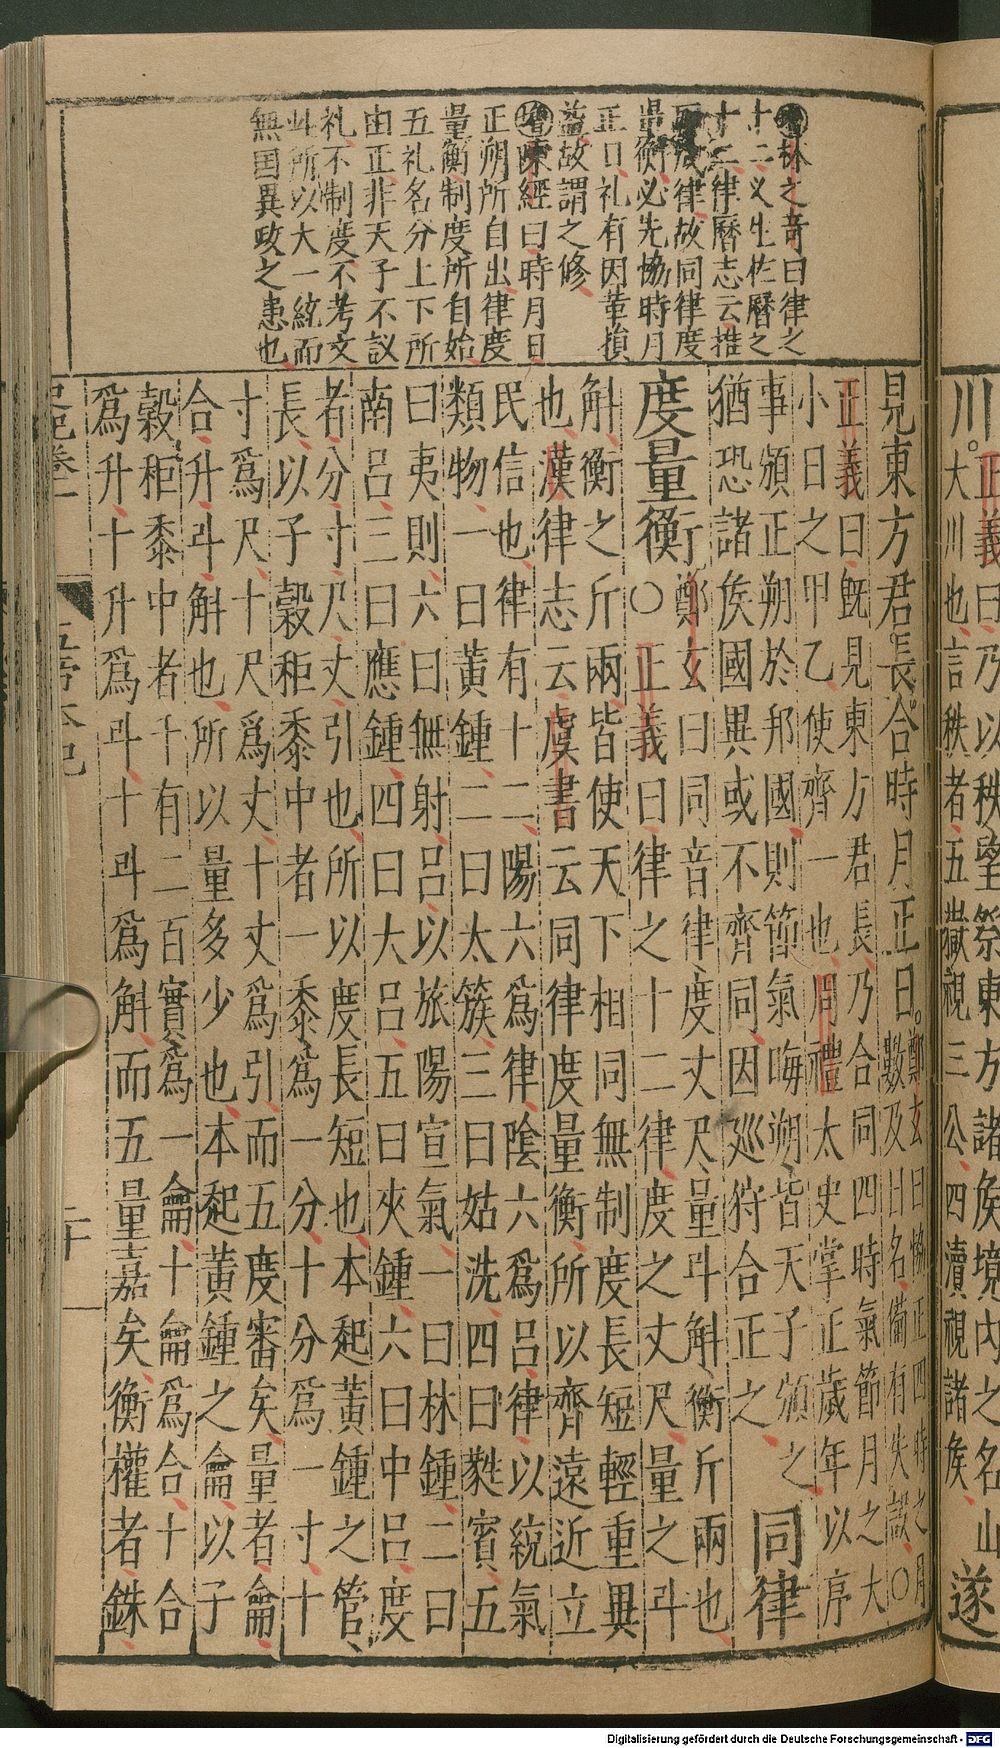 林之奇曰律之
十二又生於曆之
十二律曆志云推
曆生律故同律度
量衡必先恊時月
正日礼有因革損
益故謂之修
增陳經曰時月日
正朔所自出律度
量衡制度所自始
五礼名分上下所
由正非天子不議
礼不制度不考文
此所以大一統而
無国異政之患也
川。正義曰乃以秩望祭東方諸侯境内之名山
大川也言秩者五嶽視三公四瀆視諸侯
遂
見東方君長合時月正日。鄭玄曰恊正四時之月
數及日名備有失誤〇
正義曰既見東方君長乃合同四時氣節月之大
小日之甲乙使齊一也周禮太史掌正歲年以序
事頒正朔於邦國則節氣晦朔皆天子頒之
猶恐諸侯國異或不齊同因巡狩合正之
同律
度量衡
鄭玄曰同音律度丈尺量斗斛衡斤兩也
〇正義曰律之十二律度之丈尺量之斗
斛衡之斤兩皆使天下相同無制度長短輕重異
也漢律志云虞書云同律度量衡所以齊遠近立
民信也律有十二陽六爲律陰六爲呂律以統氣
類物一曰黃鍾二曰太簇三曰姑洗四曰蕤賓五
曰夷則六曰無射呂以旅陽宣氣一曰林鍾二曰
南呂三曰應鍾四曰大呂五曰夾鍾六曰中呂度
者分寸尺丈引也所以度長短也本起黃鍾之管
長以子穀秬黍中者一黍爲一分十分爲一寸十
寸爲尺十尺爲丈十丈爲引而五度審矣量者龠
合升斗斛也所以量多少也本起黃鍾之龠以子
穀秬黍中者千有二百實爲一龠十龠爲合十合
爲升十升爲斗十斗爲斛而五量嘉矣衡權者銖
Digitalisierung gefördert durch die Deutsche Forschungsgemeinschaft - DFG